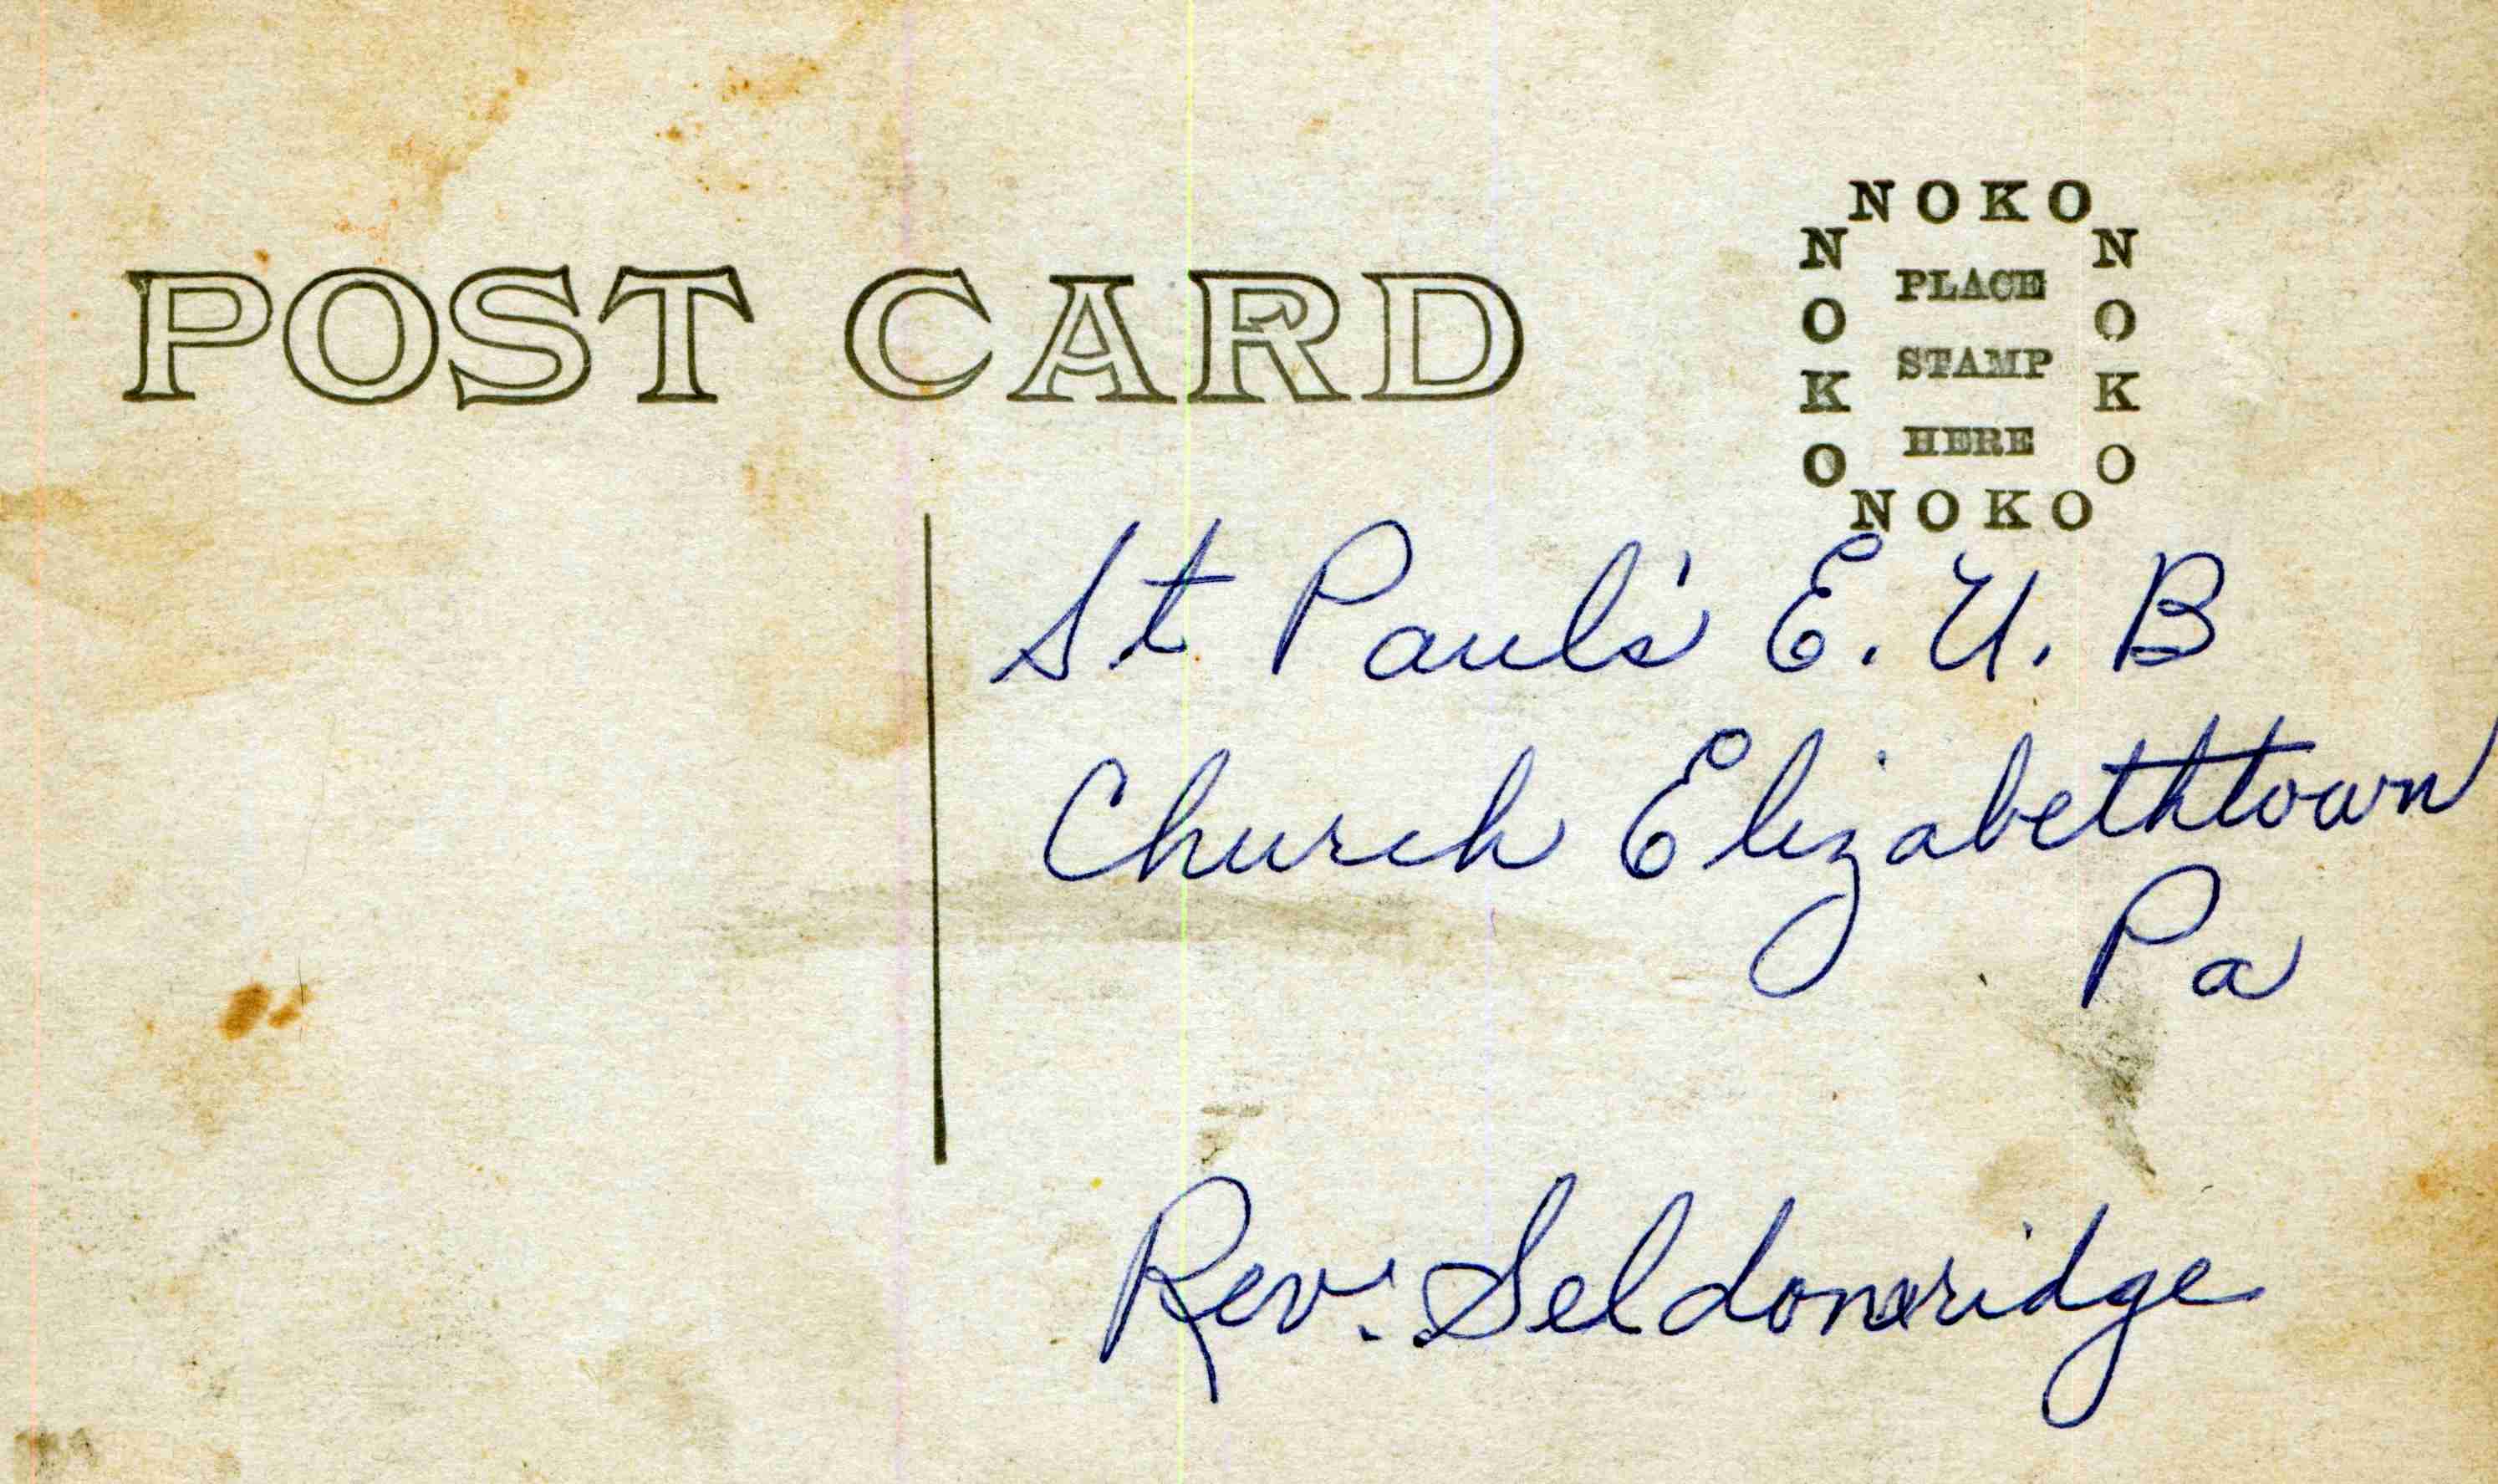 POST CARD
NOKO
NOKO
NOKO
PLACE
STAMP
HERE
NOKO
St Paul's E. U. B
Church Elizabethtown
Pa
Rev. Seldomridge